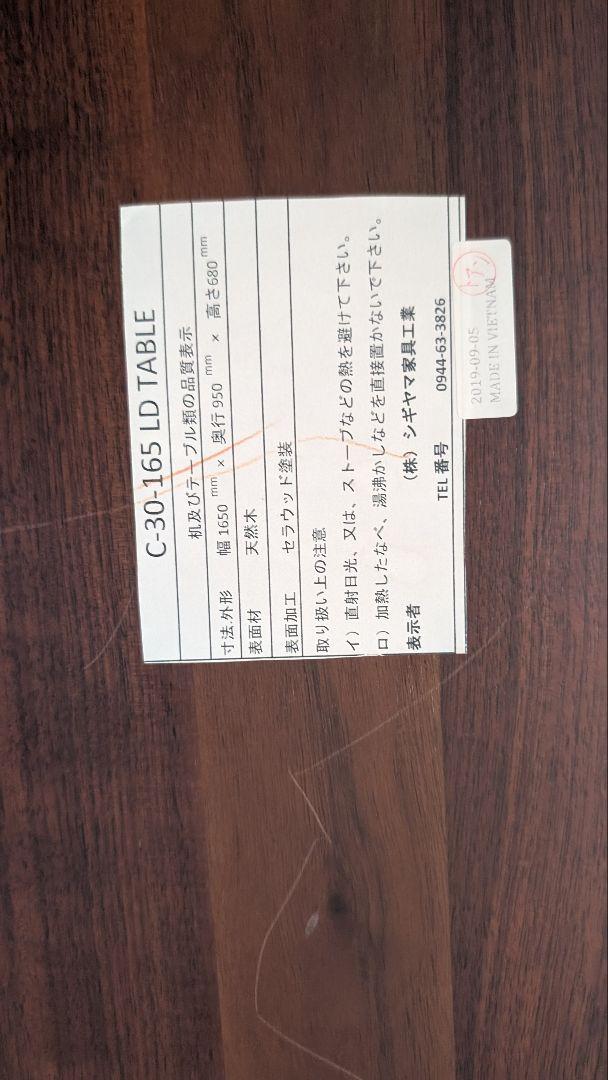 C-30-165 LD TABLE
机及びテーブル類の品質表示
寸法.外形 幅 1650 mm × 奥行 950 mm × 高さ680 mm
表面材 天然木
表面加工 セラウッド塗装
取り扱い上の注意
イ）直射日光、又は、ストーブなどの熱を避けて下さい。
ロ）加熱したなべ、湯沸かしなどを直接置かないで下さい。
表示者 （株）シギヤマ家具工業
TEL 番号 0944-63-3826
2019-09-05
MADE IN VIETNAM